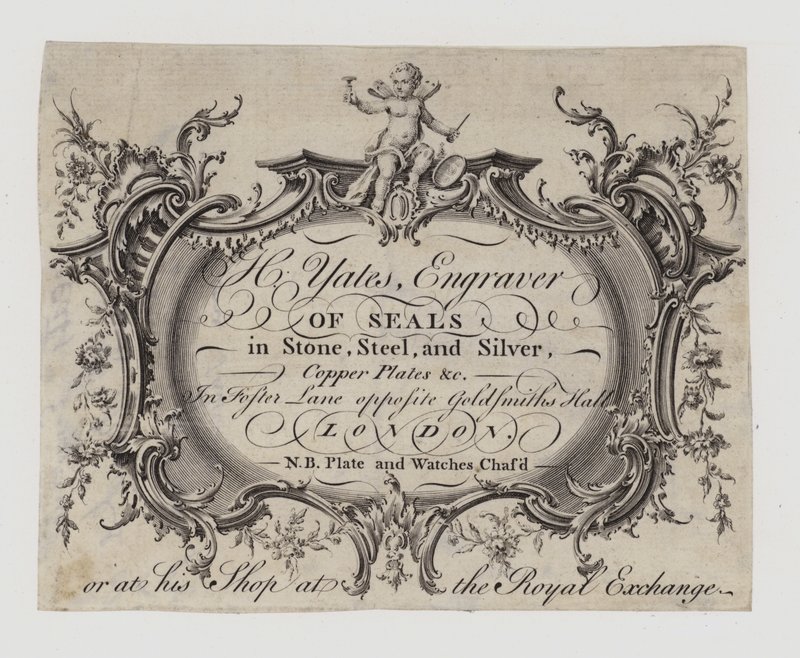 H. Yates, Engraver
OF SEALS
in Stone, Steel, and Silver,
Copper Plates &c.
In Foſter Lane oppoſite Goldſmiths Hall
LONDON.
N.B. Plate and Watches Chas'd
or at his Shop at the Royal Exchange